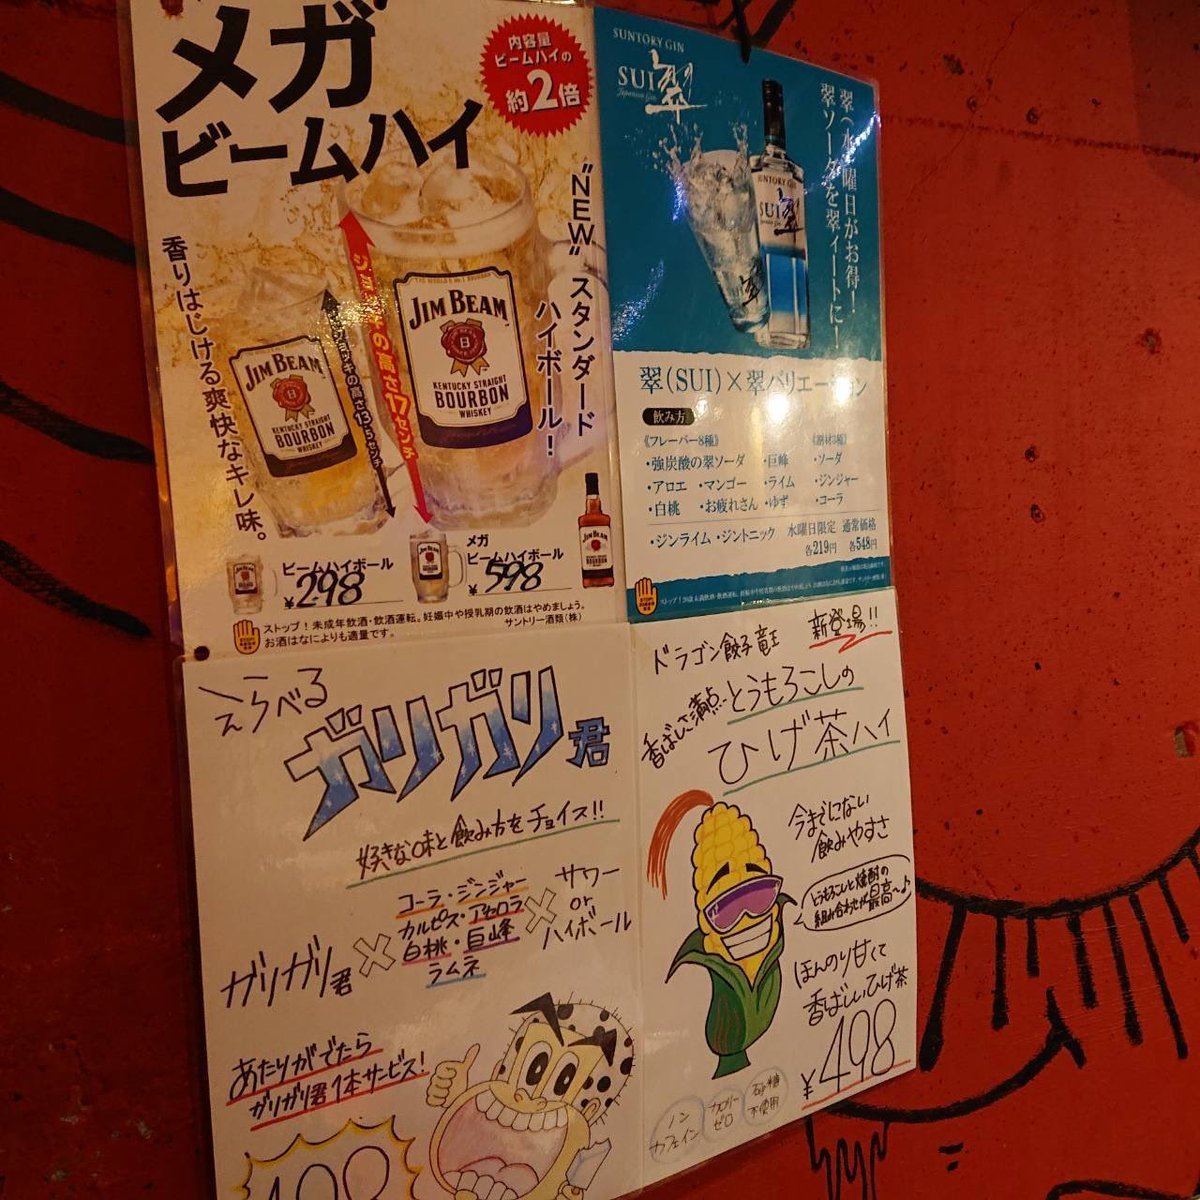 メガ
ビームハイ
内容量
ビームハイの
約2倍
"NEW" スタンダード
ハイボール!
香りはじける爽快なキレ味。
ジョッキの高さ17センチ
ジョッキの高さ13.5センチ
JIM BEAM
KENTUCKY STRAIGHT
BOURBON
WHISKEY
JIM BEAM
KENTUCKY STRAIGHT
BOURBON
WHISKEY
ビームハイボール
¥298
メガ
ビームハイボール
¥598
JIM BEAM
ストップ!未成年飲酒・飲酒運転。妊娠中や授乳期の飲酒はやめましょう。
お酒はなによりも適量です。
サントリー酒類(株)
SUNTORY GIN
SUI 翠
Japanese Gin
翠(水)曜日がお得!
翠ソーダを翠ィートに!
SUNTORY GIN
SUI 翠
翠(SUI)×翠バリエーション
飲み方
《フレーバー8種》
・強炭酸の翠ソーダ ・巨峰
・アロエ ・マンゴー ・ライム
・白桃 ・お疲れさん ・ゆず
《割材3種》
・ソーダ
・ジンジャー
・コーラ
・ジンライム ・ジントニック
水曜日限定 通常価格
各219円 各548円
えらべる
ガリガリ君
好きな味と飲み方をチョイス!!
ガリガリ君 ×
コーラ・ジンジャー
カルピス・アセロラ
白桃・巨峰
ラムネ
×
サワー
or
ハイボール
あたりがでたら
ガリガリ君1本サービス!
ドラゴン餃子竜王
新登場!!
香ばしさ満点
とうもろこしの
ひげ茶ハイ
今までにない
飲みやすさ
とうもろこしと焼酎の
組み合わせが最高〜♪
ほんのり甘くて
香ばしいひげ茶
¥498
ノン
カフェイン
カロリー
ゼロ
砂糖
不使用